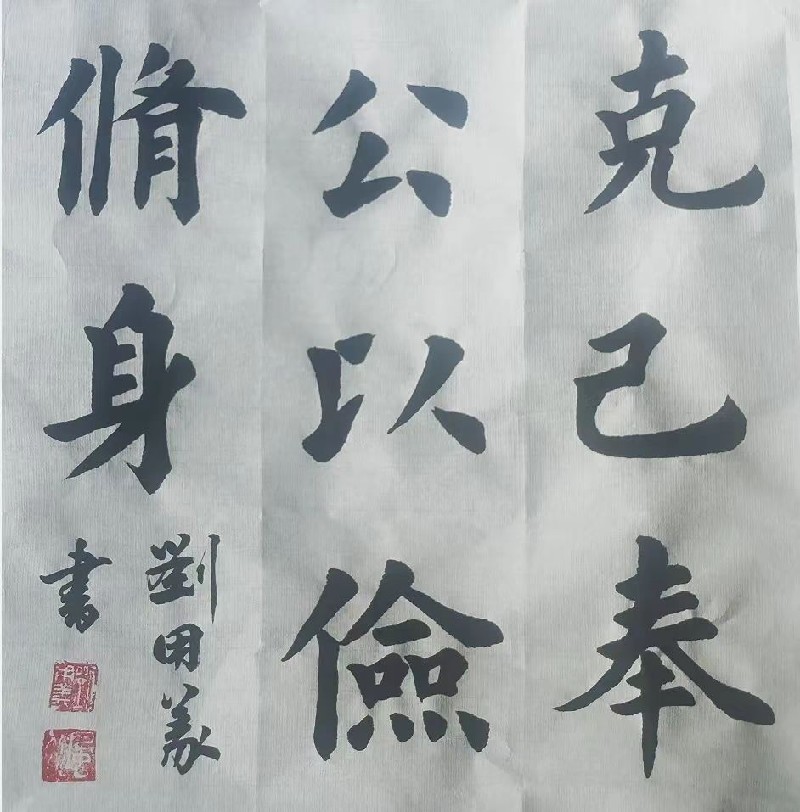 克己奉
公以儉
脩身
劉田義
書